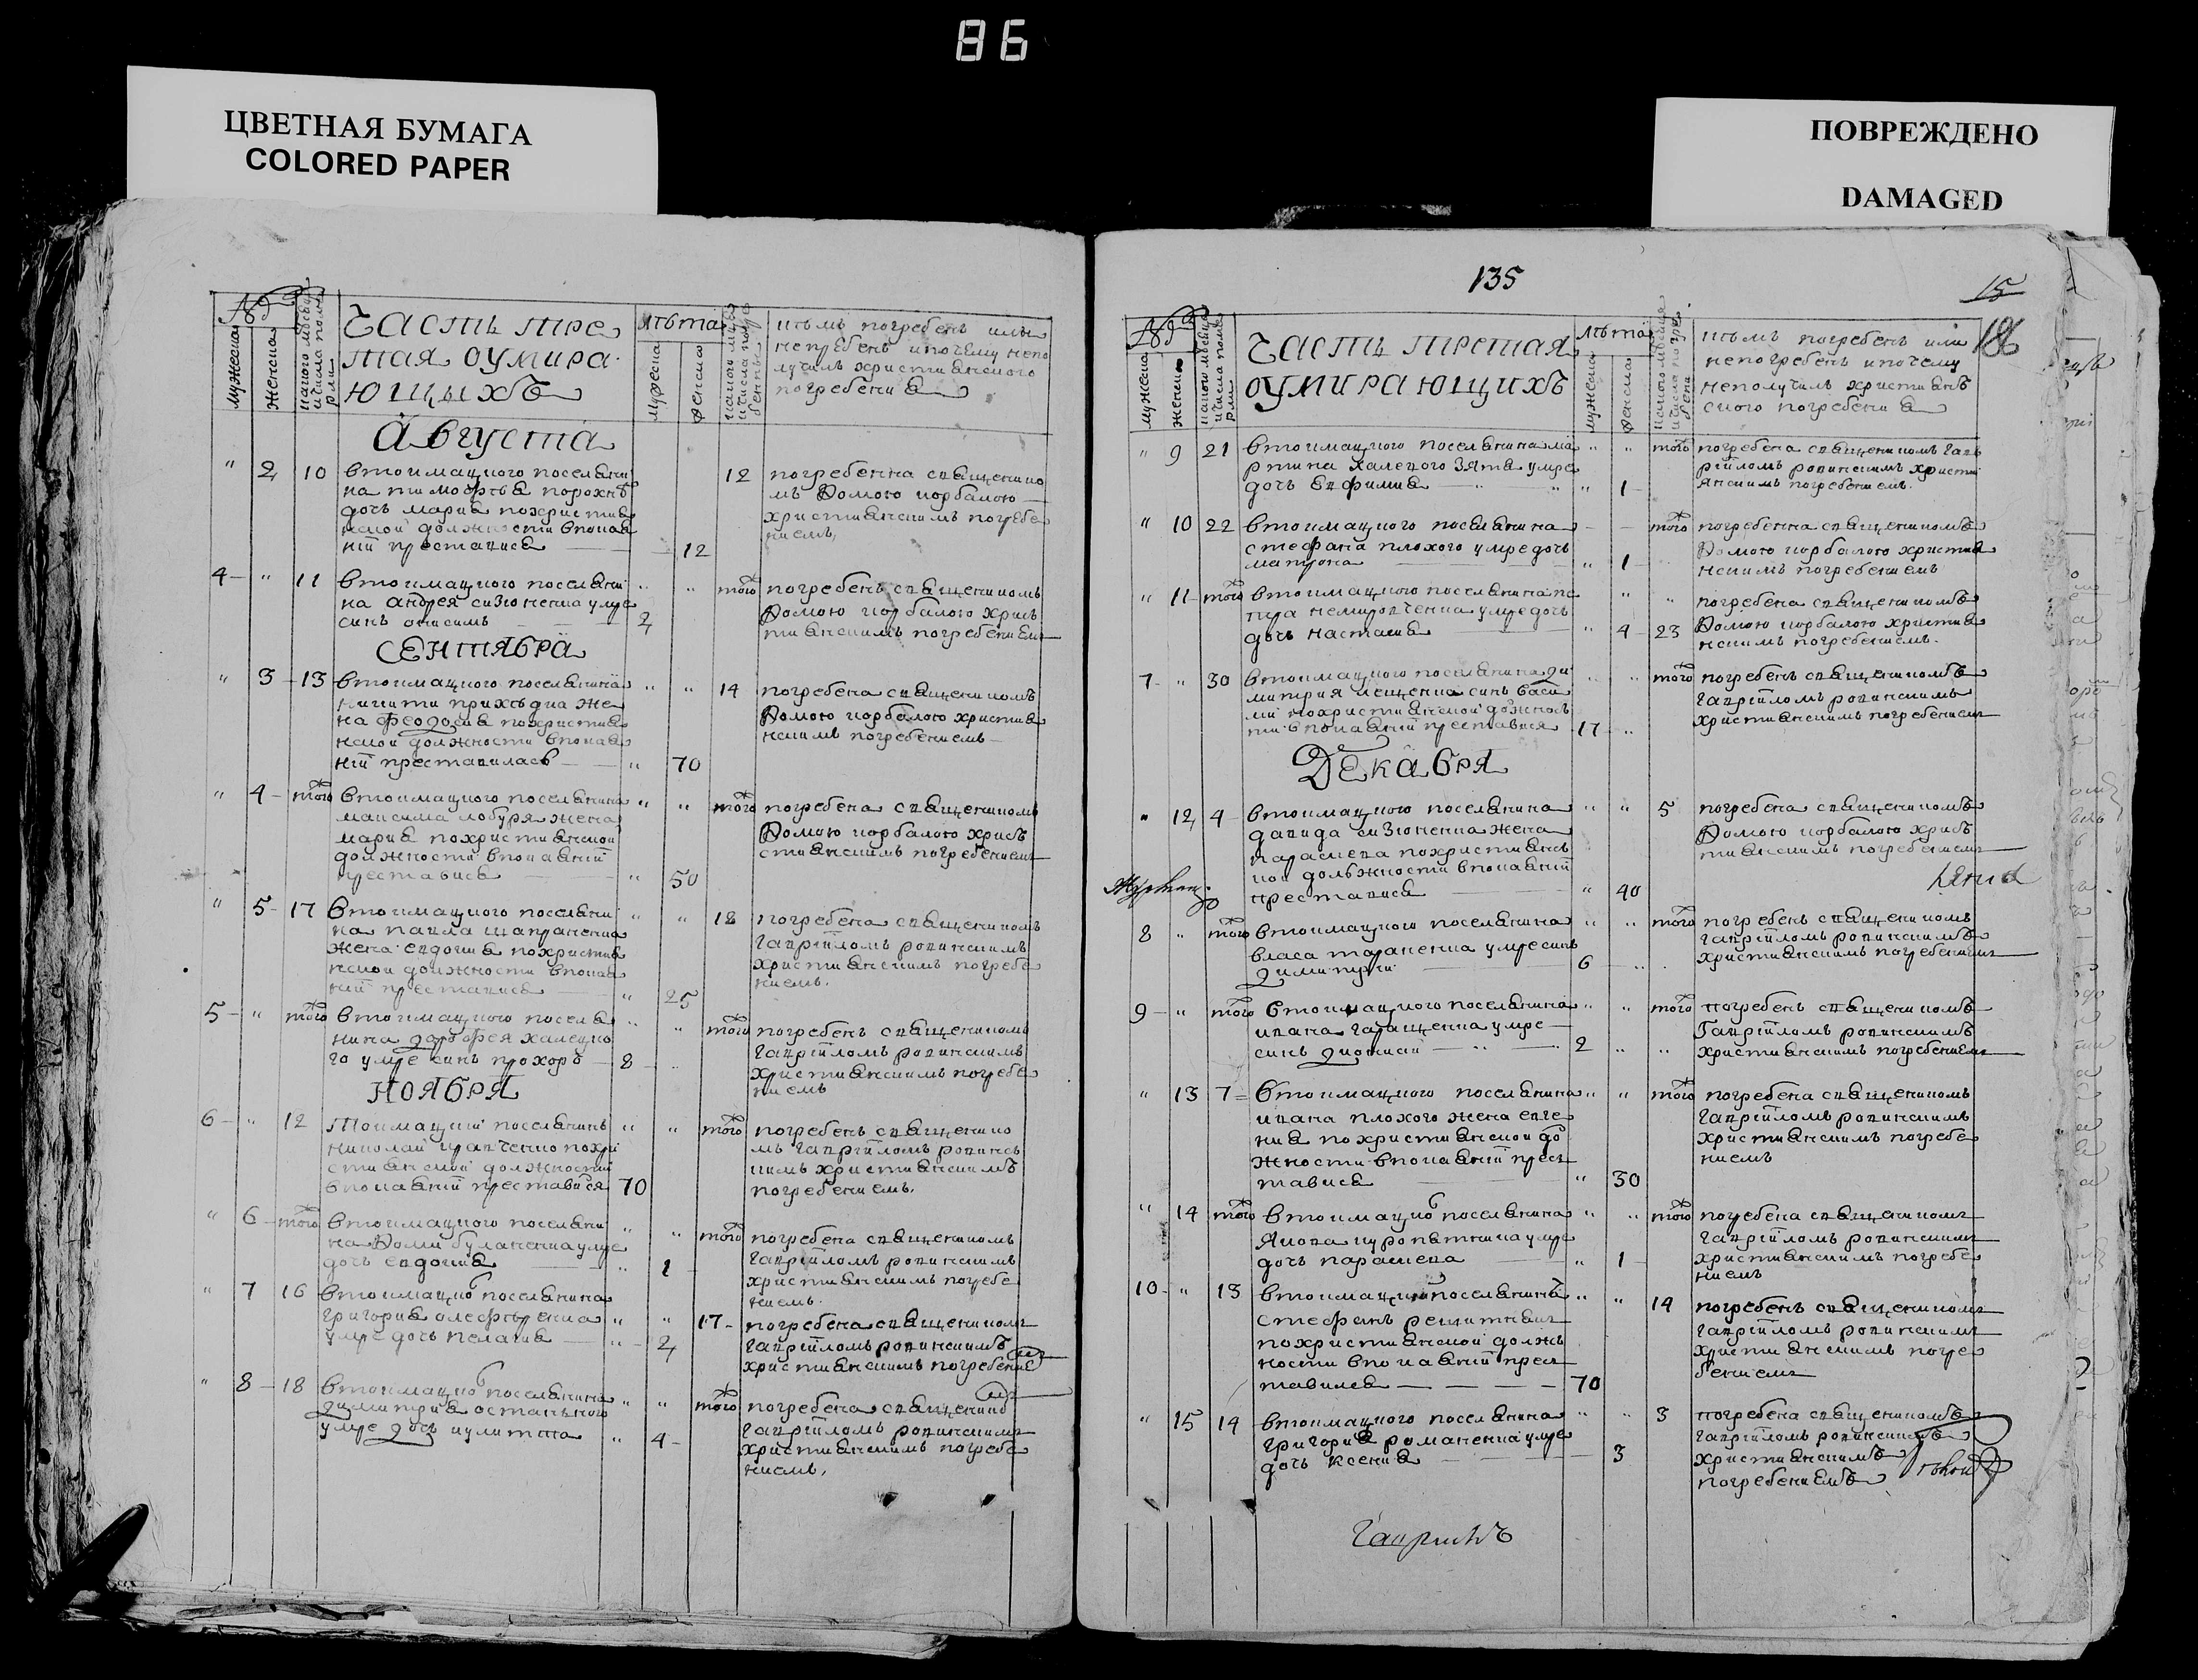 86
ЦВЕТНАЯ БУМАГА
COLORED PAPER
ПОВРЕЖДЕНО
DAMAGED
№
мужеска
женска
Часть тре
тая оумира
ющыхъ
лѣта
мужеска
женска
кѣмъ погребенъ или
непогребенъ ипочему непо
лучилъ христианского
погребения
Августа
" 2 10
втокмацкого поселяни
на тимофѣя
дочь мария похристия
нской должности впокая
нїи преставися
12
12
погребенна священико
мъ Фомою корбалою
християнскимъ погребе
ниемъ
4 " 11
втокмацкого поселяни
на андрея сизюненка умре
синъ онисимъ
2
того
погребенъ священикомъ
Фомою корбалою христ
тиянскимъ погребениемъ
СЕНТЯБРЯ
" 3 13
втокмацкого поселянина
никити приходка же
на феодосия похристия
нской должности впокая
нїи преставилась
" 70
14
погребена священикомъ
Фомою корбалою христия
нскимъ погребениемъ
" 4 того
втокмацкого поселянина
максима лобуря жена
мария похристиянской
должности впокаянїи
преставися
" 50
того
погребена священикомъ
Фомою корбалою христь
стиянскимъ погребениемъ
" 5 17
втокмацкого поселяни
на павла шапраненка
жена евдокия похристия
нской должности впокая
нїи преставися
" 25
18
погребена священикомъ
гаврїиломъ ровинскимъ
християнскимъ погребе
ниемъ.
5 " того
втокмацкого поселя
нина дорофея халецко
го умре синъ прохоръ
8
того
погребенъ священикомъ
гаврїиломъ ровинскимъ
християнскимъ погребе
ниемъ
НОЯБРЯ
6 " 12
Токмацкїй поселянинъ
николай кравченко похри
стиянской должности
впокаянїи преставися
70
того
погребенъ священико
мъ гаврїиломъ ровинсь
кимъ християнскимъ
погребениемъ.
" 6 того
втокмацкого поселяни
на Фоми буланенка умре
дочь евдокия
" 1
того
погребена священикомъ
гаврїиломъ ровинскимъ
християнскимъ погребе
ниемъ.
" 7 16
втокмацко поселянина
григория олефѣренка
умре дочь пелагия
" 2
17
погребена священикомъ
гаврїиломъ ровинскимъ
християнскимъ погребение
" 8 18
втокмацко поселянина
димитрия остапьного
умре дочь иулитта
" 4
того
погребена священико
гаврїиломъ ровинскимъ
християнскимъ погребе
ниемъ,
135
15
186
№
мужеска
женска
Часть третая
оумирающихъ
лѣта
мужеска
женска
кѣмъ погребенъ или
непогребенъ ипочему
неполучилъ христианъ
ского погребения
" 9 21
втокмацкого поселянина ма
ртина халецкого зятя умре
дочь евфимия
" 1
того
погребена священикомъ гавъ
рїиломъ ровинскимъ христи
янскимъ погребениемъ.
" 10 22
втокмацкого поселянина
стефана плохого умре дочь
матрона
" 1
того
погребенна священикомъ
Фомою корбалою христия
нскимъ погребениемъ
" 11 того
втокмацкого поселянина пе
тра немировченка умре дочь
дочь настасия
" 4 23
погребена священикомъ
Фомою корбалою христия
нскимъ погребениемъ.
7 " 30
втокмацкого поселянина ди
митрия лещенка синъ васи
лїй похристиянской должнось
ти впокаянїи преставися
17
того
погребенъ священикомъ
гаврїиломъ ровинскимъ
християнскимъ погребениемъ
ДЕКАБРЯ
" 12 4
втокмацкого поселянина
давида сизюненка жена
параскева похристиянсь
кой должности впокаянїи
преставися
" 40
5
погребена священикомъ
Фомою корбалою христь
тиянскимъ погребениемъ
8 " того
втокмацкого поселянина
власа тараненка умре синъ
димитрїй
6
того
погребенъ священикомъ
гаврїиломъ ровинскимъ
християнскимъ погребениемъ
9 " того
втокмацкого поселянина
ивана гаращенка умре
синъ дионисїй
2
того
погребенъ священикомъ
гаврїиломъ ровинскимъ
християнскимъ погребениемъ
" 13 7
втокмацкого поселянина
ивана плохого жена евге
ния похристиянской до
жности впокаянїи прес
тавися
" 30
того
погребена священикомъ
гаврїиломъ ровинскимъ
християнскимъ погребе
ниемъ
" 14 того
втокмацко поселянина
якова куропятника умре
дочь парасмева
" 1
того
погребена священикомъ
гаврїиломъ ровинскимъ
християнскимъ погребе
ниемъ
10 " 13
втокмацко поселянинъ
стефанъ
похристиянской должь
ности впокаянїи прес
тавился
70
14
погребенъ священикомъ
гаврїиломъ ровинскимъ
християнскимъ погре
бениемъ
" 15 14
втокмацкого поселянина
григория романенка умре
дочь ксения
3
3
погребена священикомъ
гаврїиломъ ровинскимъ
християнскимъ
погребениемъ
Гавриилъ